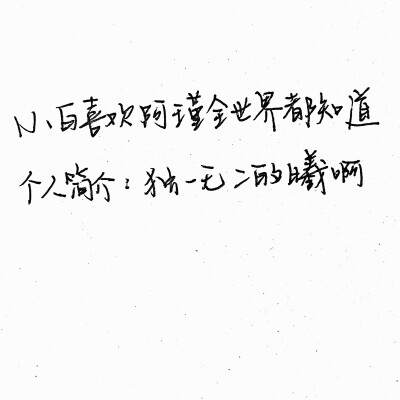 小百喜欢阿瑾全世界都知道
个人简介:独一无二的曦啊